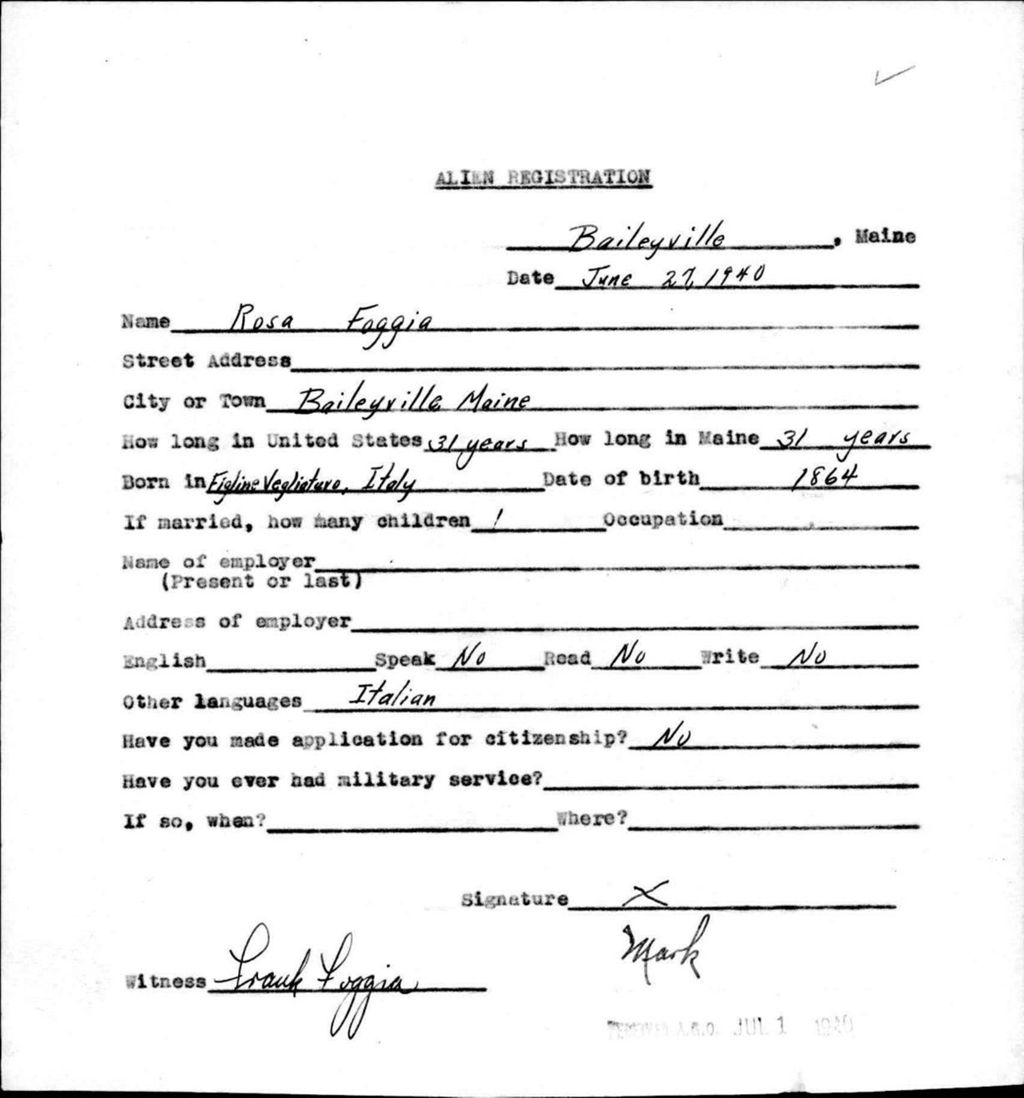 ALIEN REGISTRATION
Baileyville, Maine
Date June 27, 1940
Name Rosa Foggia
Street Address
City or Town Baileyville Maine
How long in United States 31 years How long in Maine 31 years
Born in Figline Vegliaturo, Italy Date of birth 1864
If married, how many children 1 Occupation
Name of employer
(Present or last)
Address of employer
English Speak No Read No Write No
Other languages Italian
Have you made application for citizenship? No
Have you ever had military service?
If so, when? Where?
Signature X
Mark
Witness Frank Foggia
RECEIVED A.G.O. JUL 1 1940